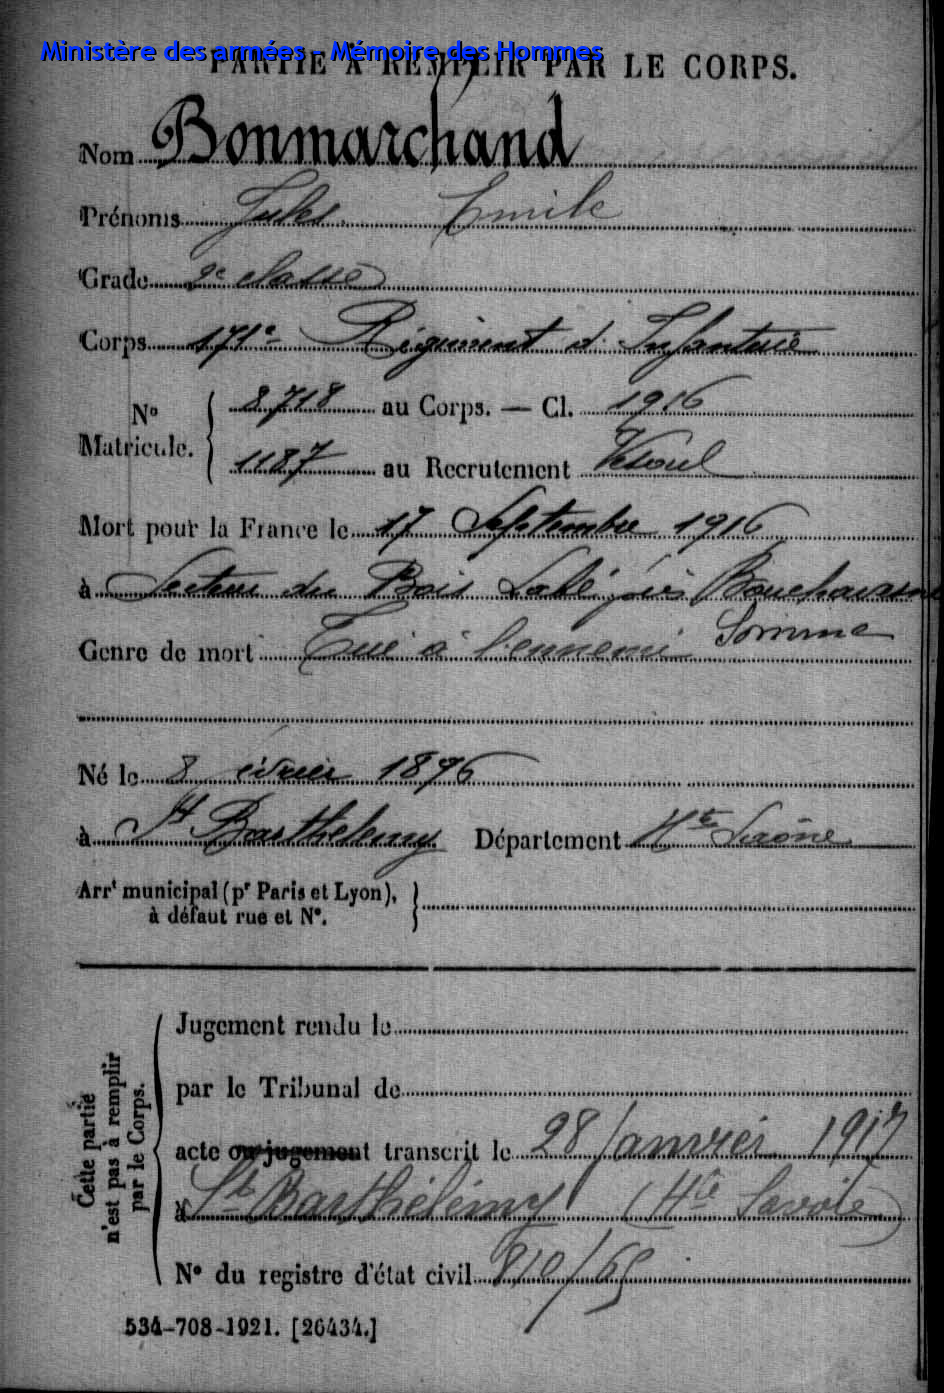 Ministère des armées - Mémoire des Hommes
PARTIE À REMPLIR PAR LE CORPS.
Nom Bonmarchand
Prénoms Jules Emile
Grade 2e classe
Corps 171e Régiment d'Infanterie
No Matricule. { 8718 au Corps. — Cl. 1916
1187 au Recrutement Vesoul
Mort pour la France le 17 Septembre 1916
à Secteur du Bois Labé près Bouchavesnes
Somme
Genre de mort Tué à l'ennemi
Né le 8 février 1896
à St Barthelemy Département Hte Saône
Arrt municipal (pr Paris et Lyon),
à défaut rue et No.
Cette partie
n'est pas à remplir
par le Corps.
Jugement rendu le
par le Tribunal de
acte ou jugement transcrit le 28 Janvier 1917
à St Barthélémy (Hte Savoie)
No du registre d'état civil 810/65
534-708-1921. [26434.]